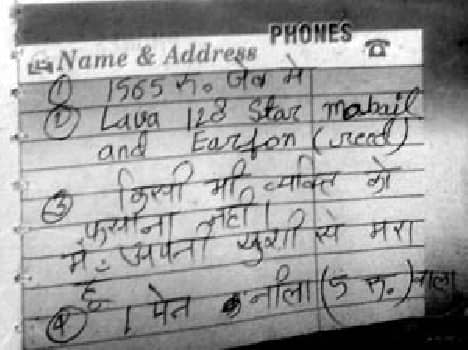 PHONES
Name & Address
① 1565 रू० जेब मे
② Lava 128 Star mabail
and Earfon (reed)
③ किसी भी व्यक्ति को
फसाना नही।
मैं अपनी खुशी से मरा
हूँ
④ 1 पेन नीला (5 रू.) वाला